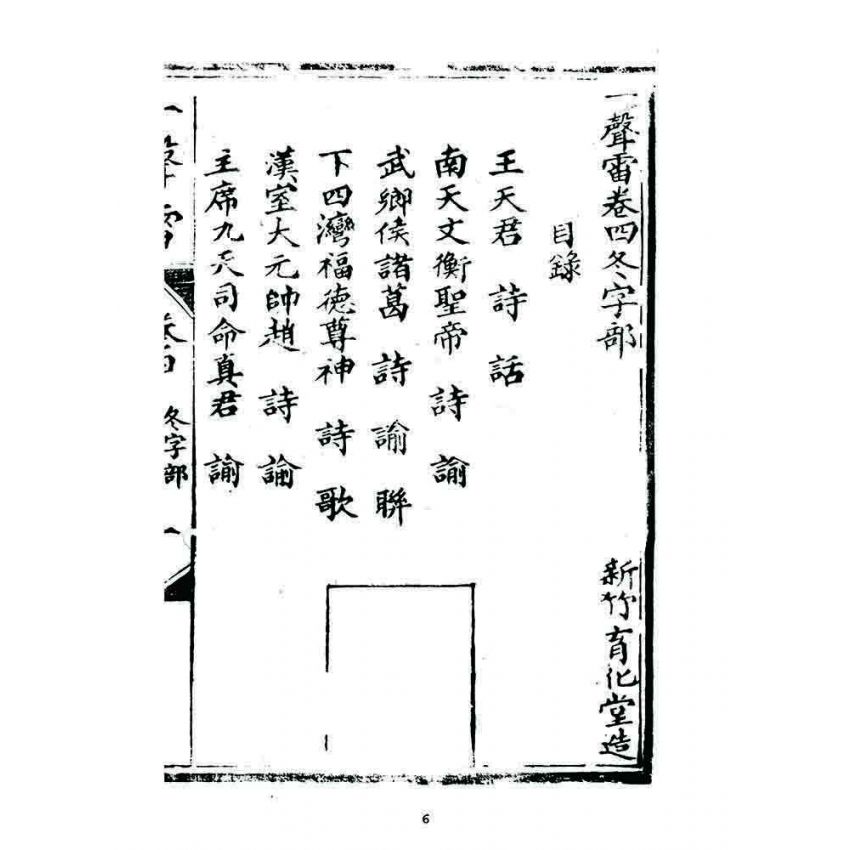 一聲雷卷四冬字部 新竹育化堂造
目錄
王天君 詩 話
南天文衡聖帝 詩 諭
武鄉侯諸葛 詩 諭 聯
下四灣福德尊神 詩 歌
漢室大元帥趙 詩 諭
主席九天司命真君 諭
一聲雷 冬字部 一
6